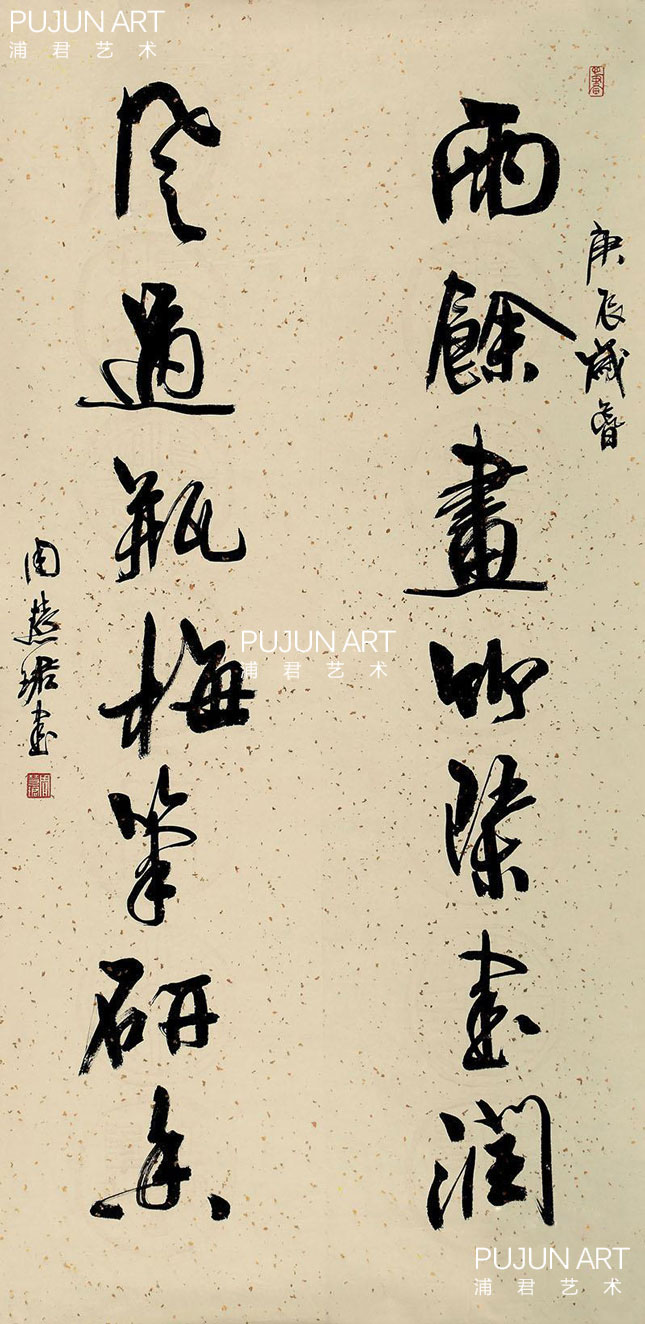 PUJUN ART
浦君艺术
庚辰歲春
雨餘畫竹書潤
風過瓶梅筆研香
周慧珺書
PUJUN ART
浦君艺术
PUJUN ART
浦君艺术